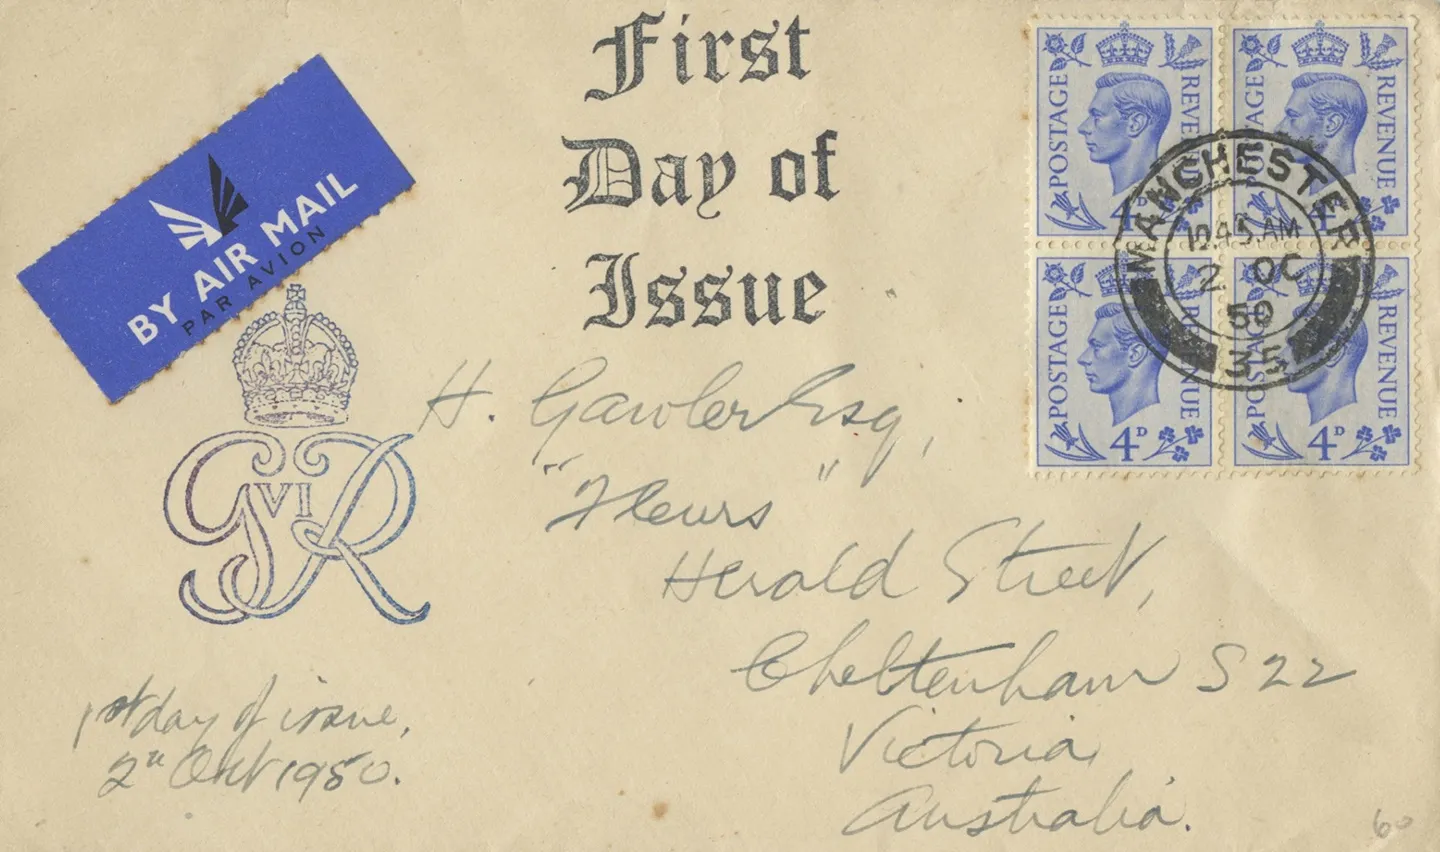 First
Day of
Issue
BY AIR MAIL
PAR AVION
G VI R
POSTAGE REVENUE
4D
POSTAGE REVENUE
4D
POSTAGE REVENUE
4D
POSTAGE REVENUE
4D
MANCHESTER
AM
2 OC
50
35
H. Gawler Esq,
"Fleurs"
Herald Street,
Cheltenham S22
Victoria
Australia.
1st day of issue,
2nd Oct 1950.
60